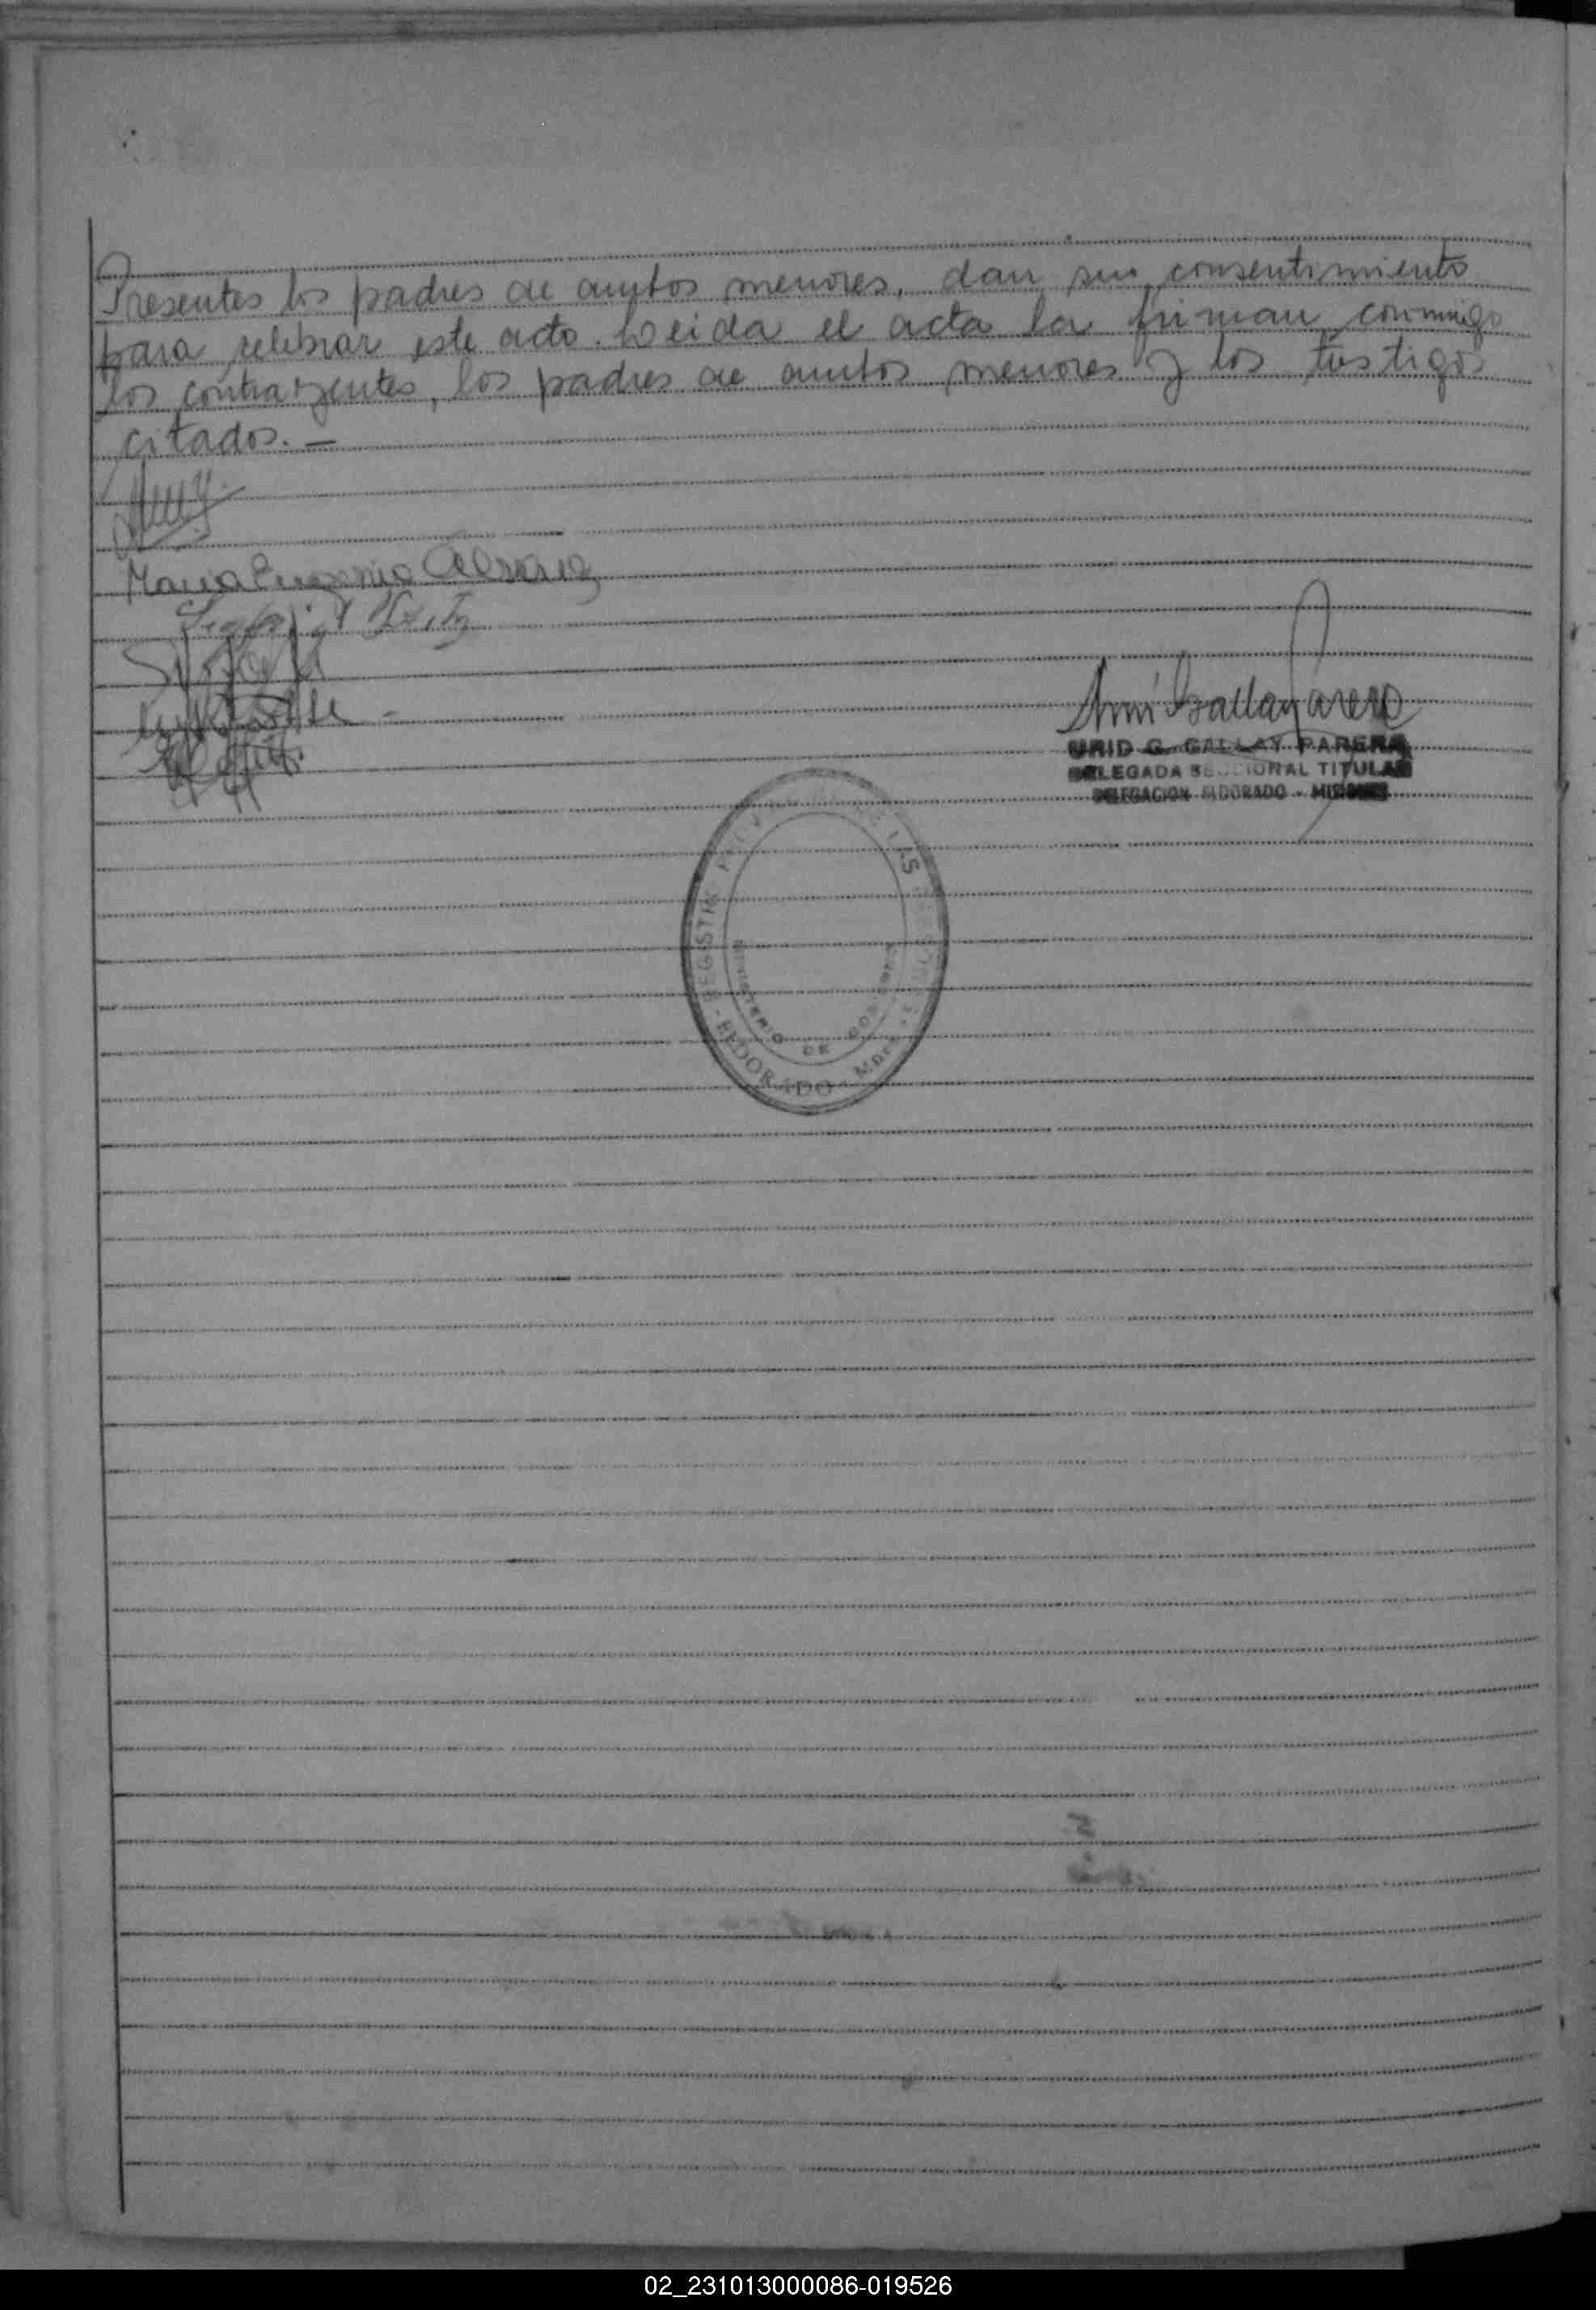 Presentes los padres de ambos menores, dan su consentimiento
para celebrar este acto. Leida el acta la firman conmigo
los contrayentes, los padres de ambos menores y los testigos
citados. —
Maria Eugenia
GALLAY PARERA
DELEGADA SECCIONAL TITULAR
DELEGACION ELDORADO - MISIONES
REGISTRO
DE LAS
MINISTERIO DE GOBIERNO
ELDORADO - Mnes
02_231013000086-019526